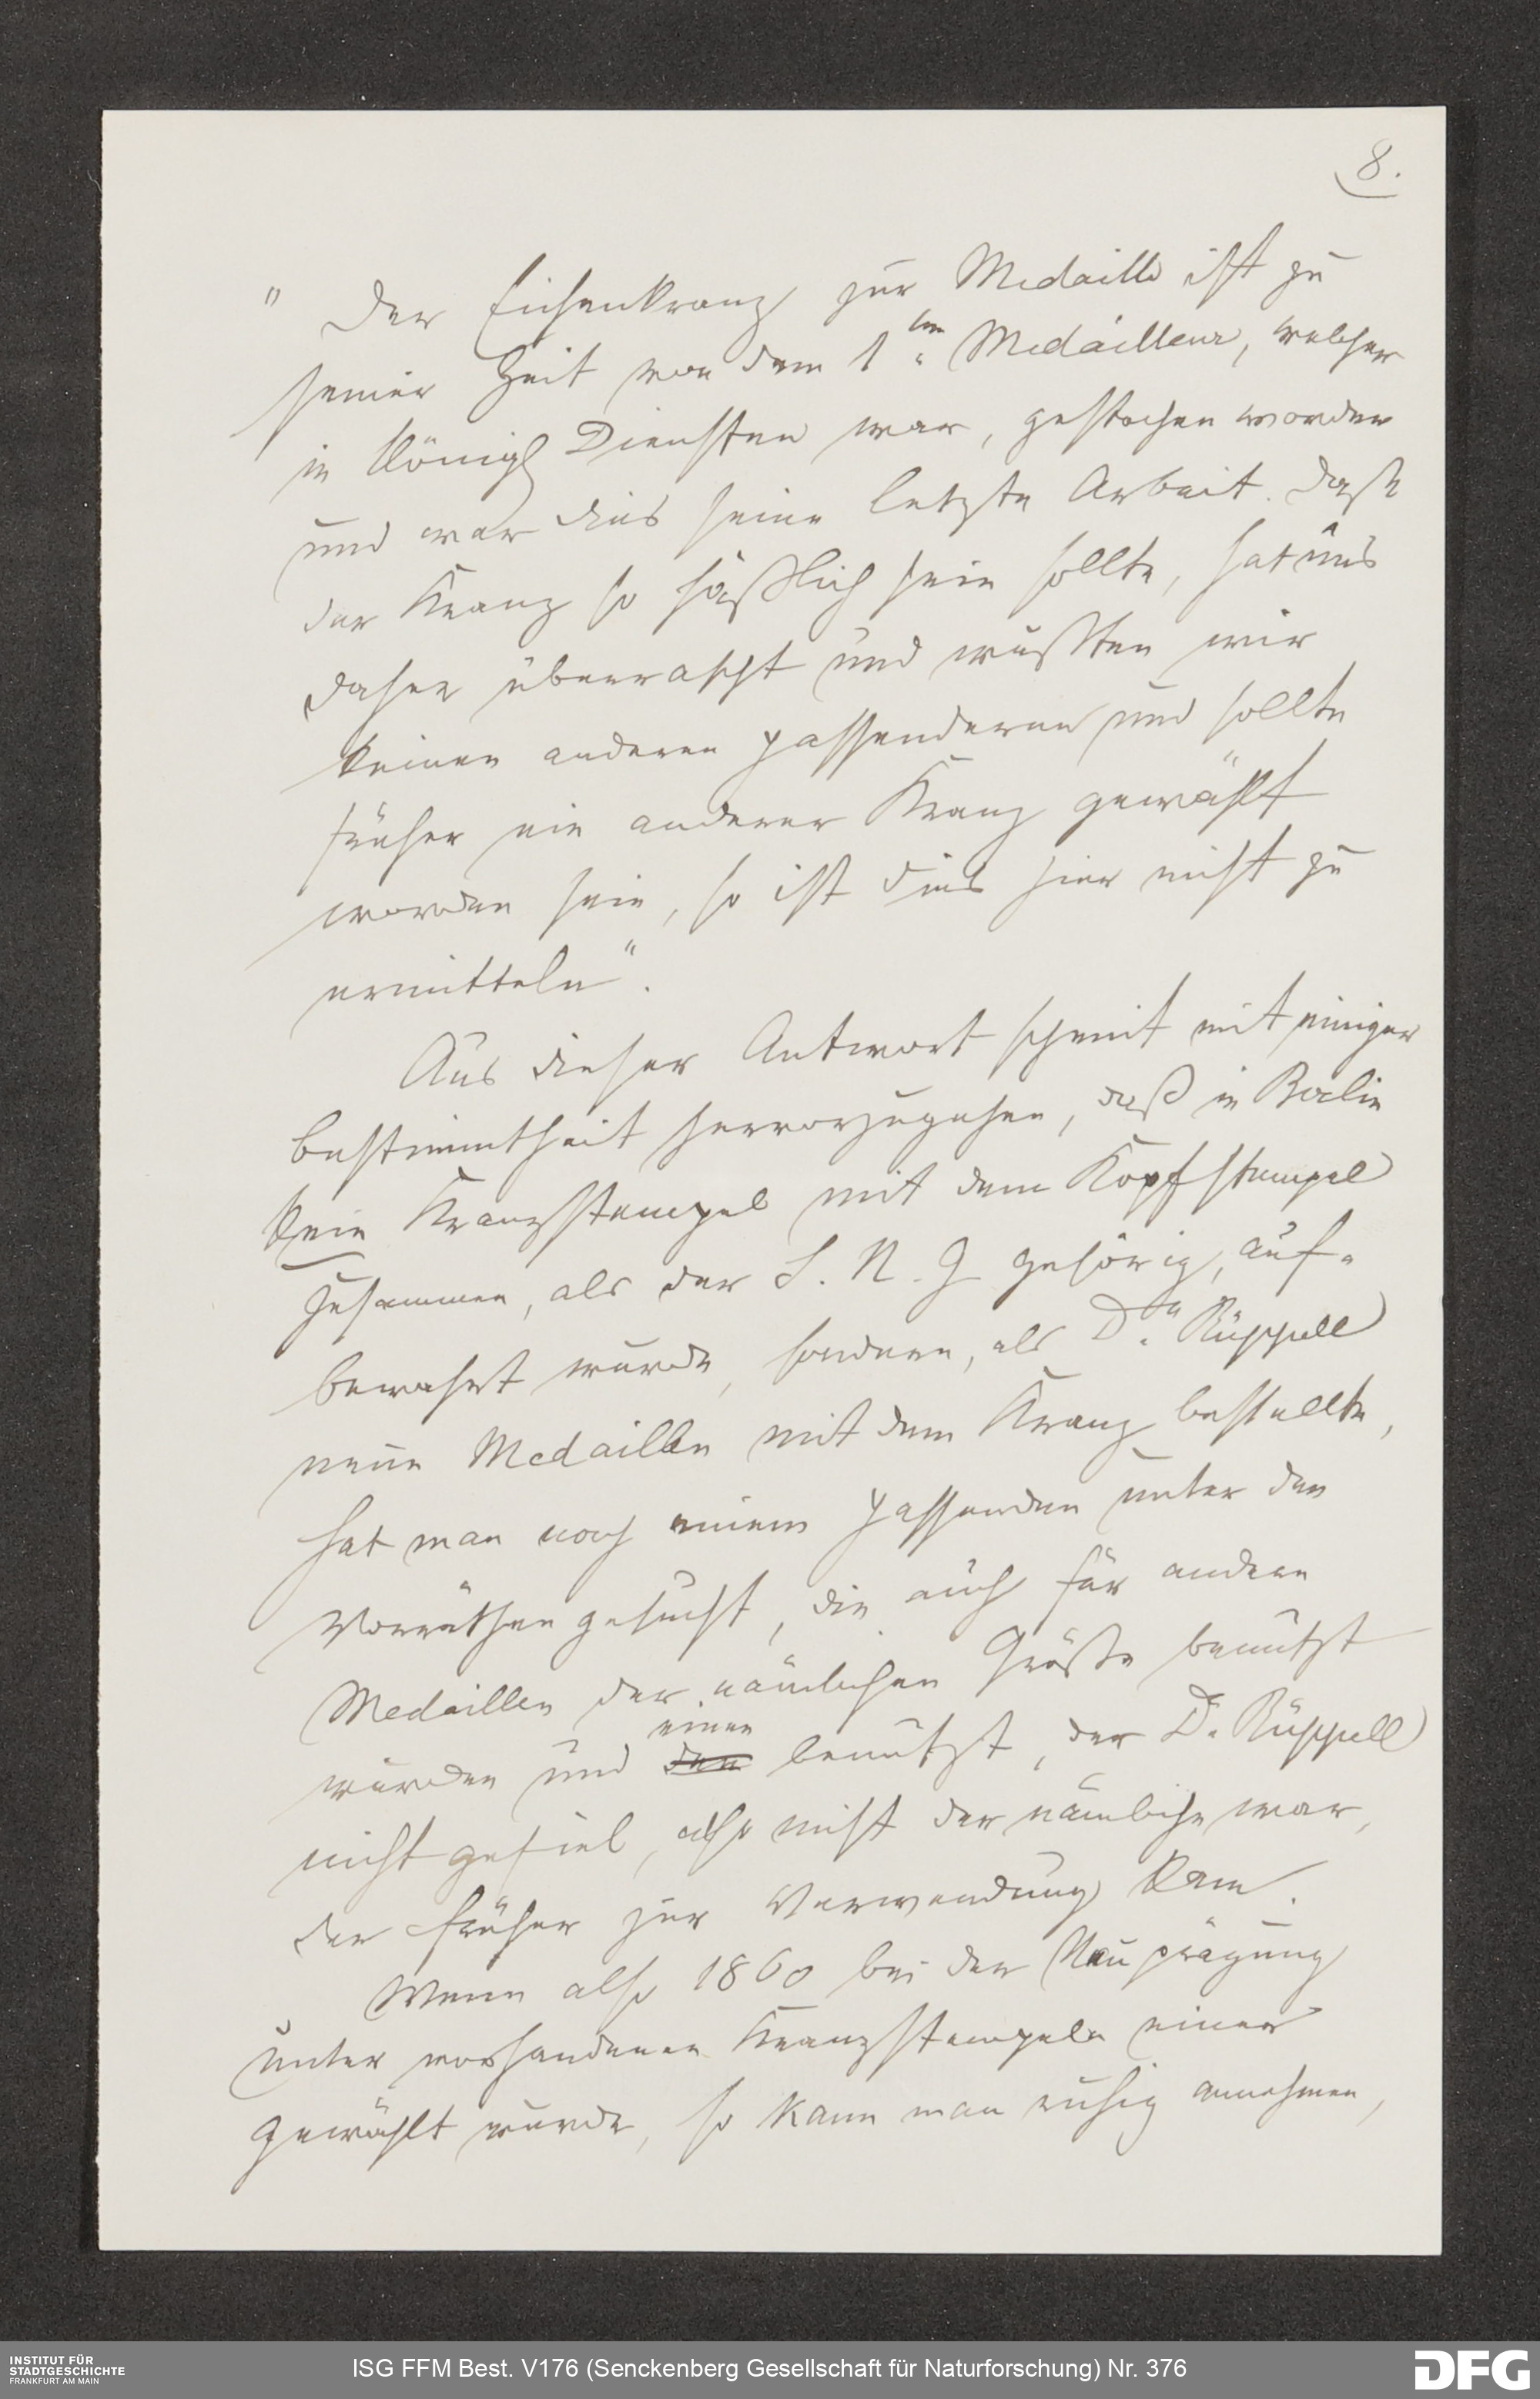 8.
" Der Eichenkranz zur Medaille ist zu
seiner Zeit von dem 1ten Medailleur, welcher
in Königl Diensten war, gestochen worden
und war dies seine letzte Arbeit. Daß
der Kranz so häßlich sein sollte, hat uns
daher überrascht und wußten wir
keinen anderen passenderen und sollte
früher ein anderer Kranz gewählt
worden sein, so ist dies hier nicht zu
ermitteln".
Aus dieser Antwort scheint mit einiger
Bestimmtheit hervorzugehen, daß in Berlin
kein Kranzstempel mit dem Kopfstempel
zusammen, als der S. N. G gehörig, auf-
bewahrt wurde, sondern, als Dr. Rüppell
neue Medaillen mit dem Kranz bestellte,
hat man nach einem passenden unter den
Vorräthen gesucht, die auch für andere
Medaillen der nämlichen Größe benutzt
einen
wurden und den benutzt, der D. Rüppell
nicht gefiel, also nicht der nämliche war,
der früher zur Verwendung kam.
Wenn also 1860 bei der Neuprägung
unter vorhandenen Kranzstempeln einer
gewählt wurde, so kann man ruhig annehmen,
INSTITUT FÜR
STADTGESCHICHTE
FRANKFURT AM MAIN
ISG FFM Best. V176 (Senckenberg Gesellschaft für Naturforschung) Nr. 376
DFG